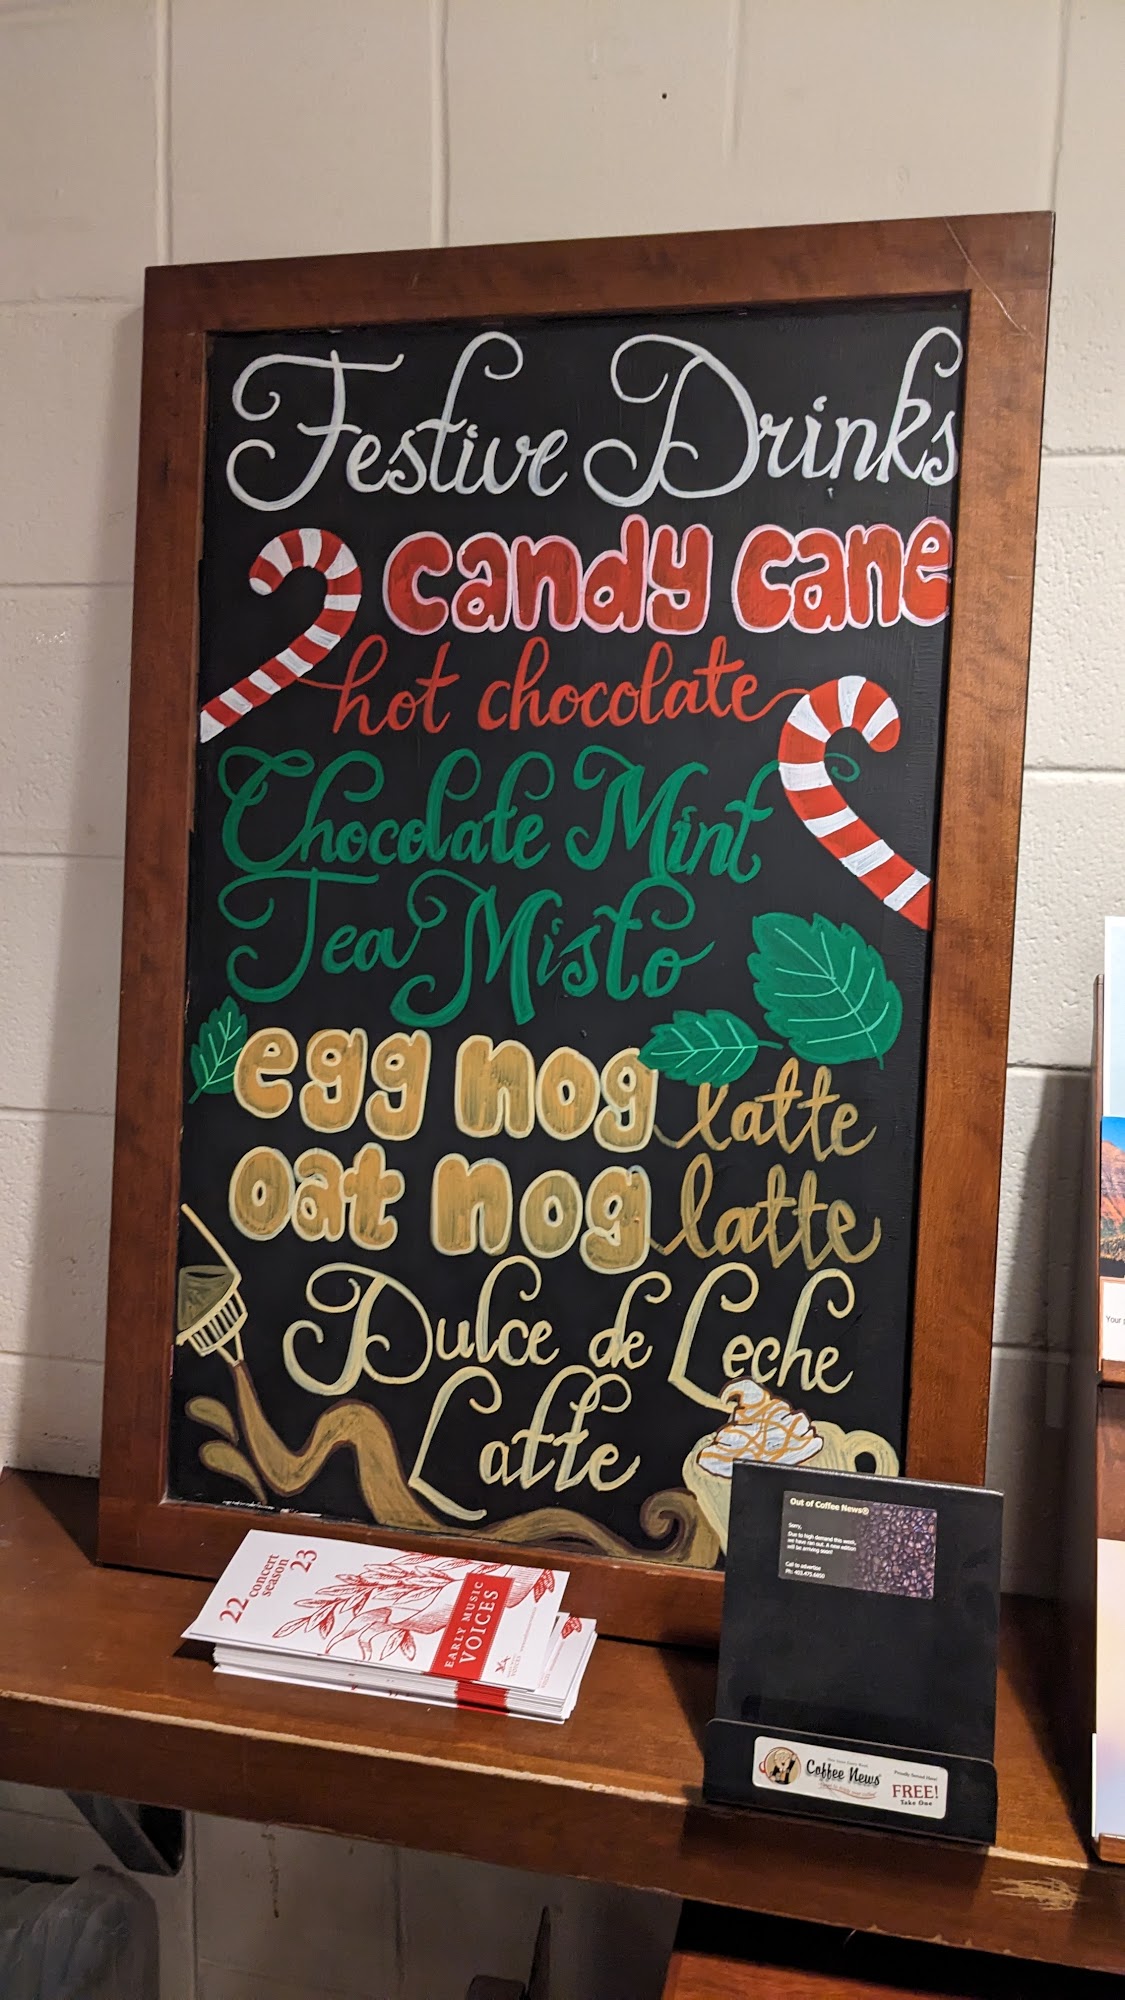 Festive Drinks
candy cane
hot chocolate
Chocolate Mint
Tea Misto
egg nog latte
oat nog latte
Dulce de Leche
Latte
22
concert
season
23
EARLY MUSIC
VOICES
Out of Coffee News®
Sorry,
Due to high demand this week,
we have ran out. A new edition
will be arriving soon!
Call to advertise
Ph: 403.475.6850
Coffee News
Proudly Served Here!
FREE!
Take One
Your